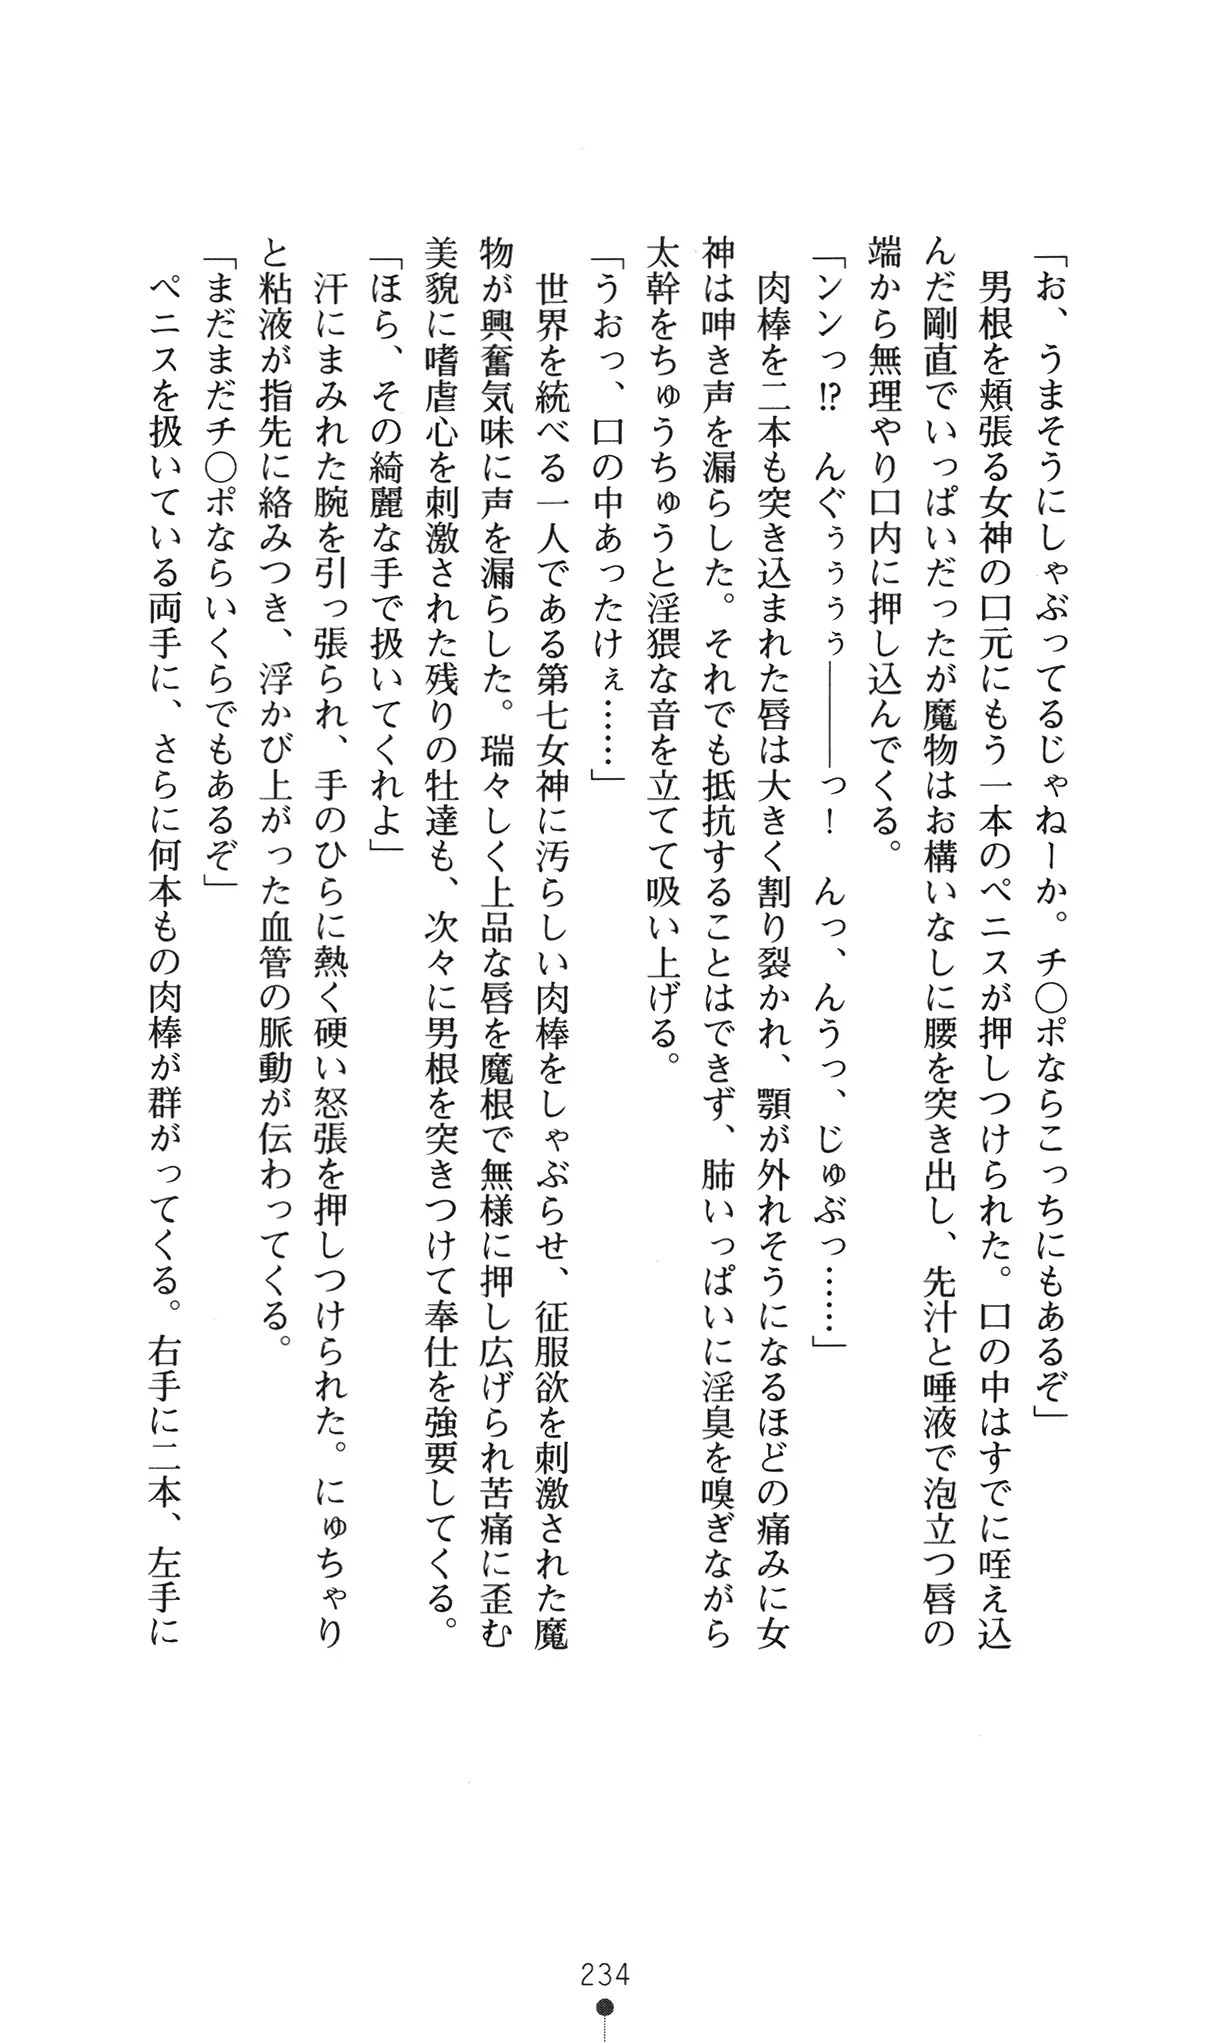 「お、うまそうにしゃぶってるじゃねーか。チ〇ポならこっちにもあるぞ」
男根を頬張る女神の口元にもう一本のペニスが押しつけられた。口の中はすでに咥え込
んだ剛直でいっぱいだったが魔物はお構いなしに腰を突き出し、先汁と唾液で泡立つ唇の
端から無理やり口内に押し込んでくる。
「ンンっ⁉　んぐぅぅぅぅ――――っ！　んっ、んうっ、じゅぶっ……」
肉棒を二本も突き込まれた唇は大きく割り裂かれ、顎が外れそうになるほどの痛みに女
神は呻き声を漏らした。それでも抵抗することはできず、肺いっぱいに淫臭を嗅ぎながら
太幹をちゅうちゅうと淫猥な音を立てて吸い上げる。
「うおっ、口の中あったけぇ……」
世界を統べる一人である第七女神に汚らしい肉棒をしゃぶらせ、征服欲を刺激された魔
物が興奮気味に声を漏らした。瑞々しく上品な唇を魔根で無様に押し広げられ苦痛に歪む
美貌に嗜虐心を刺激された残りの牡達も、次々に男根を突きつけて奉仕を強要してくる。
「ほら、その綺麗な手で扱いてくれよ」
汗にまみれた腕を引っ張られ、手のひらに熱く硬い怒張を押しつけられた。にゅちゃり
と粘液が指先に絡みつき、浮かび上がった血管の脈動が伝わってくる。
「まだまだチ〇ポならいくらでもあるぞ」
ペニスを扱いている両手に、さらに何本もの肉棒が群がってくる。右手に二本、左手に
234